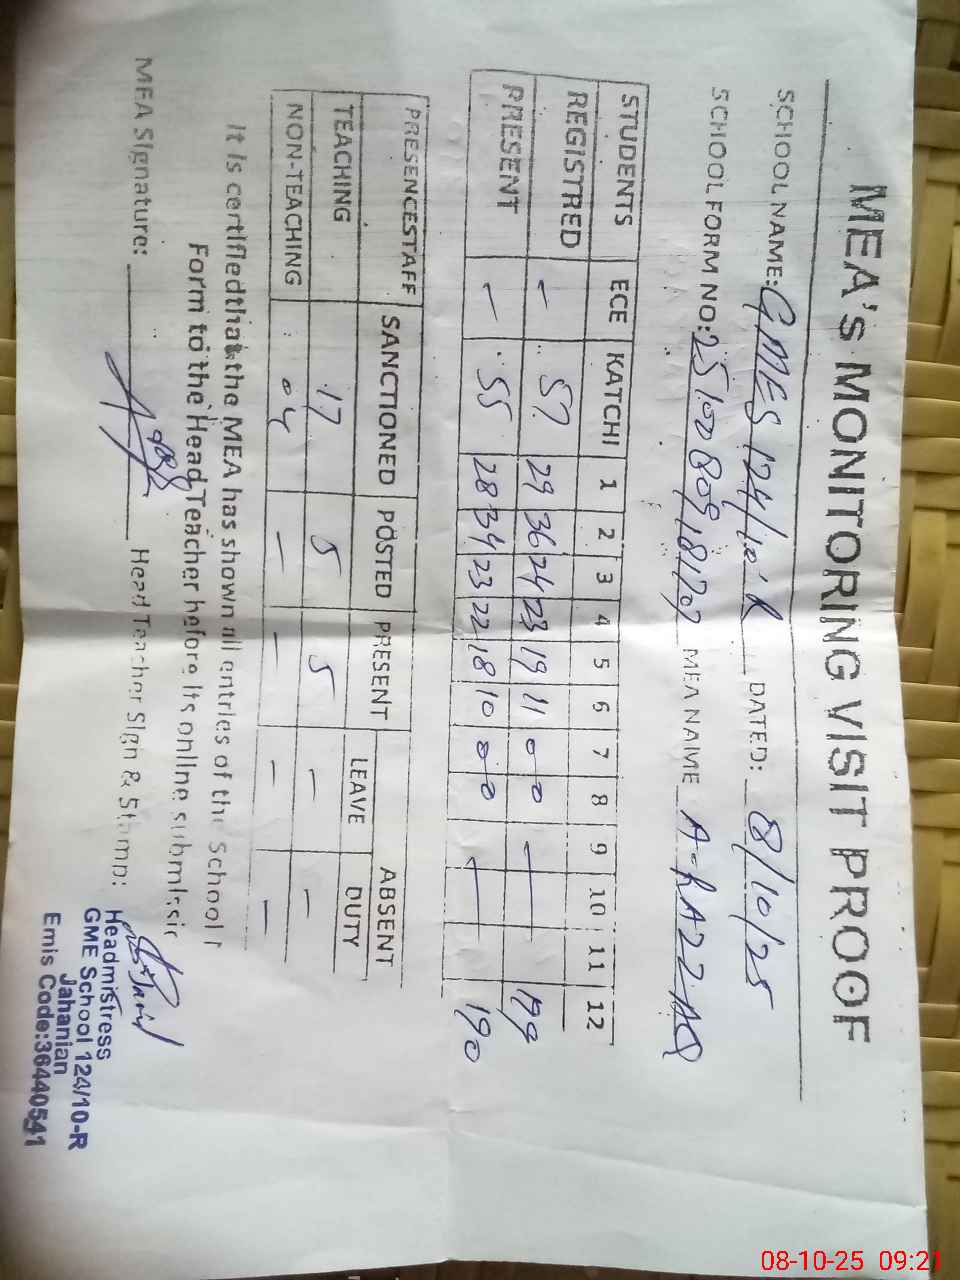 MEA's MONITORING VISIT PROOF
SCHOOL NAME: GMES 124/10-R DATED: 8/10/25
SCHOOL FORM NO: MEA NAME A-RAZZAQ
STUDENTS ECE KATCHI 1 2 3 4 5 6 7 8 9 10 11 12
REGISTRED - 57 29 36 24 23 19 11 0 0 — 199
PRESENT - 55 28 34 23 22 18 10 0 0 — 190
PRESENCESTAFF SANCTIONED POSTED PRESENT ABSENT
LEAVE DUTY
TEACHING 17 5 5 - -
NON-TEACHING 04 - - - -
It is certifiedthat the MEA has shown all entries of the School
Form to the Head Teacher before its online submissir
MEA Signature: Head Teacher Sign & Stamp:
Headmistress
GME School 124/10-R
Jahanian
Emis Code:36440541
08-10-25 09:21